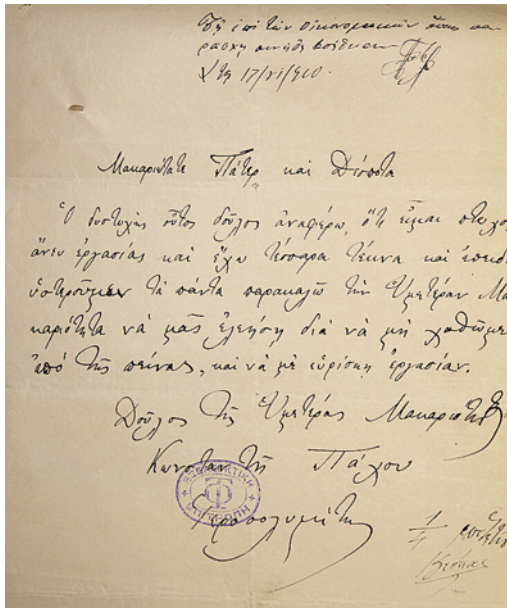 Τῇ ἐπὶ τῶν Οἰκονομικῶν ὅπως πα-
ράσχῃ βοήθειαν
τῇ 17/VI/910
Μακαριώτατε Πάτερ καὶ Δέσποτα
Ὁ δυστυχὴς οὗτος δοῦλος ἀναφέρω, ὅτι εἶμαι πτωχὸς
ἄνευ ἐργασίας καὶ ἔχω τέσσαρα τέκνα καὶ ἐπειδ
ὑστεροῦμεν τὰ πάντα παρακαλῶ τὴν Ὑμετέραν Μα
καριότητα νὰ μᾶς ἐλεήσῃ διὰ νὰ μὴ χαθῶμε
ἀπὸ τῆς πείνας, καὶ νὰ μὲ εὑρίσκῃ ἐργασίαν.
Δοῦλος τῆς Ὑμετέρας Μακαριότητος
Κωνσταντῆς Πάχου
ΕΞΕΛΕΓΚΤΙΚΗ ΕΠΙΤΡΟΠΗ
Ἱεροσολυμίτης
1/4